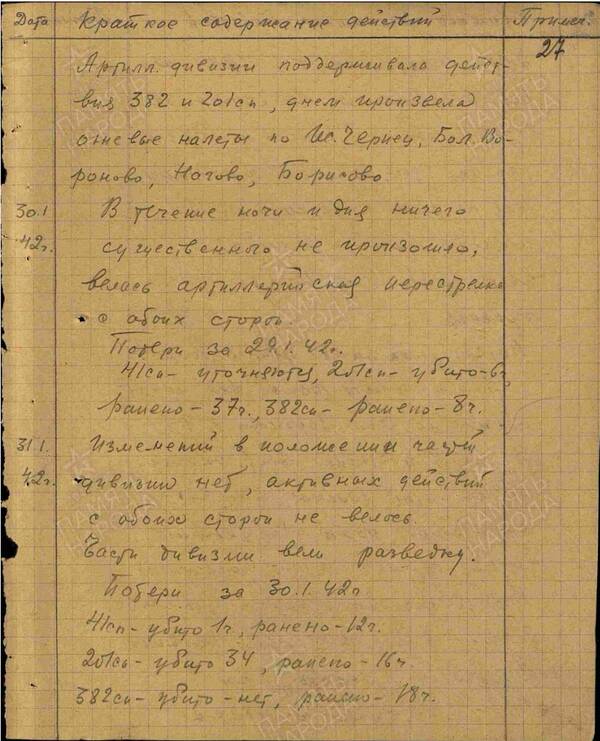 Дата Краткое содержание действий Примеч.
27
Артилл. дивизии поддерживала дейст-
вия 382 и 201сп, днем произвела
огневые налеты по Ис. Чернец, Бол. Во-
роново, Ногово, Борисово
30.1 В течение ночи и дня ничего
42г. существенного не произошло,
велась артиллерийская перестрелка
с обоих сторон.
Потери за 29.1.42г.
41сп - уточняются, 201сп - убито-6ч,
ранено - 37ч., 382сп - ранено - 8ч.
31.1. Изменений в положении частей
42г. дивизии нет, активных действий
с обоих сторон не велось.
Части дивизии вели разведку.
Потери за 30.1.42г
41сп - убито 1ч, ранено - 12ч.
201сп - убито 3ч, ранено - 16ч
382сп - убито - нет, ранено - 18ч.
ПАМЯТЬ НАРОДА